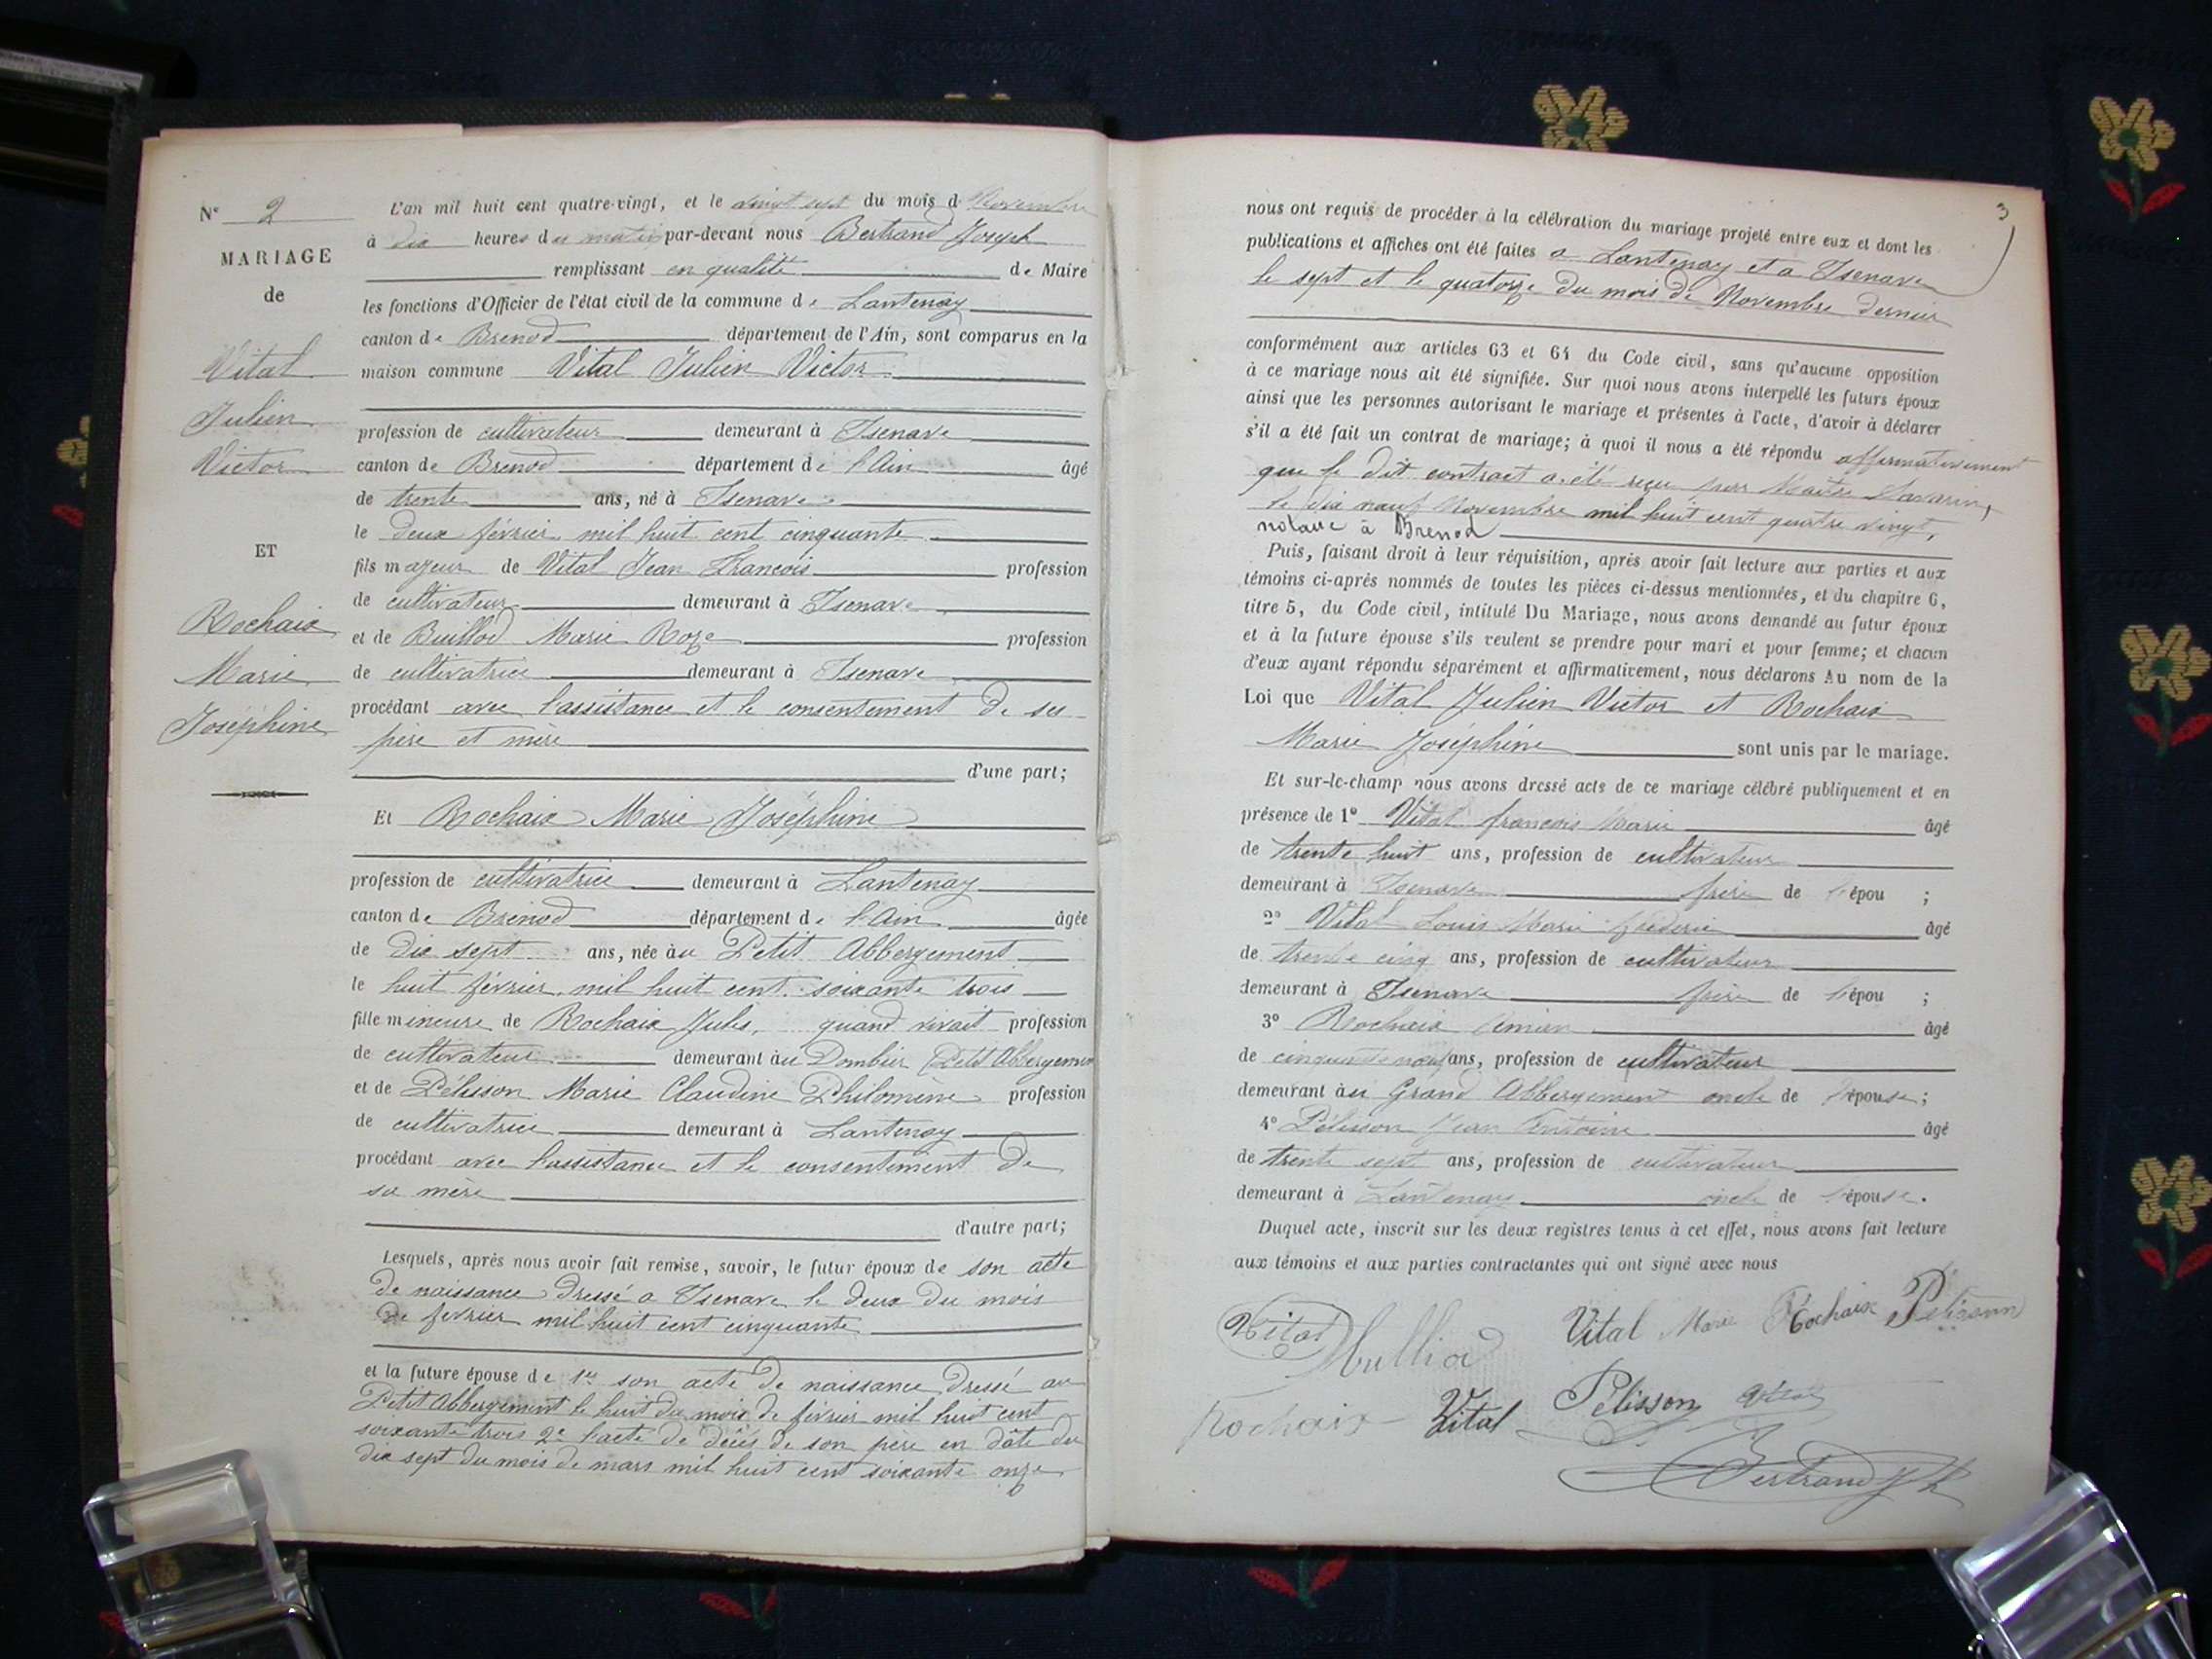 N° 2
MARIAGE
de
Vital
Julien
Victor
ET
Rochaix
Marie
Joséphine
L'an mil huit cent quatre-vingt, et le vingt sept du mois d Novembre
à dix heures du matin par-devant nous Bertrand Joseph
remplissant en qualité de Maire
les fonctions d'Officier de l'état civil de la commune de Lantenay
canton de Brenod département de l'Ain, sont comparus en la
maison commune Vital Julien Victor
profession de cultivateur demeurant à Isenave
canton de Brenod département de l'Ain âgé
de trente ans, né à Isenave
le deux février mil huit cent cinquante
fils majeur de Vital Jean François profession
de cultivateur demeurant à Isenave
et de Buillod Marie Roze profession
de cultivatrice demeurant à Isenave
procédant avec l'assistance et le consentement de ses
père et mère
d'une part;
Et Rochaix Marie Joséphine
profession de cultivatrice demeurant à Lantenay
canton de Brénod département de l'Ain âgée
de dix sept ans, née au Petit Abbergement
le huit février mil huit cent soixante trois
fille mineure de Rochaix Jules, quand vivait profession
de cultivateur demeurant au Dombier Petit Abbergement
et de Pélisson Marie Claudine Philomène profession
de cultivatrice demeurant à Lantenay
procédant avec l'assistance et le consentement de
sa mère
d'autre part;
Lesquels, après nous avoir fait remise, savoir, le futur époux de son acte
de naissance dressé a Isenave le deux du mois
de février mil huit cent cinquante
et la future épouse de 1er son acte de naissance dressé au
Petit Abbergement le huit du mois de février mil huit cent
soixante trois 2e l'acte de décès de son père en dâte du
dix sept du mois de mars mil huit cent soixante onze
3
nous ont requis de procéder à la célébration du mariage projeté entre eux et dont les
publications et affiches ont été faites a Lantenay et a Isenave
le sept et le quatorze du mois de Novembre dernier
conformément aux articles 63 et 64 du Code civil, sans qu'aucune opposition
à ce mariage nous ait été signifiée. Sur quoi nous avons interpellé les futurs époux
ainsi que les personnes autorisant le mariage et présentes à l'acte, d'avoir à déclarer
s'il a été fait un contrat de mariage; à quoi il nous a été répondu affirmativement
que le dit contract a été reçu par Maître Savarin,
le dix neuf Novembre mil huit cent quatre vingt,
notaire à Brenod
Puis, faisant droit à leur réquisition, après avoir fait lecture aux parties et aux
témoins ci-après nommés de toutes les pièces ci-dessus mentionnées, et du chapitre 6,
titre 5, du Code civil, intitulé Du Mariage, nous avons demandé au futur époux
et à la future épouse s'ils veulent se prendre pour mari et pour femme; et chacun
d'eux ayant répondu séparément et affirmativement, nous déclarons Au nom de la
Loi que Vital Julien Victor et Rochaix
Marie Joséphine sont unis par le mariage.
Et sur-le-champ nous avons dressé acte de ce mariage célébré publiquement et en
présence de 1° Vital françois Marie âgé
de trente huit ans, profession de cultivateur
demeurant à Isenave frère de l'épou ;
2° Vital Louis Marie fréderic âgé
de trente cinq ans, profession de cultivateur
demeurant à Isenave frère de l'épou ;
3° Rochaix âgé
de cinquante neuf ans, profession de cultivateur
demeurant au Grand Abbergement oncle de l'épouse;
4° Pélisson Jean Antoine âgé
de trente sept ans, profession de cultivateur
demeurant à Lantenay oncle de l'épouse.
Duquel acte, inscrit sur les deux registres tenus à cet effet, nous avons fait lecture
aux témoins et aux parties contractantes qui ont signé avec nous
Vital Vital Marie Rochaix Pelisson
Rochaix Vital Pelisson Vital
Bertrand Jh